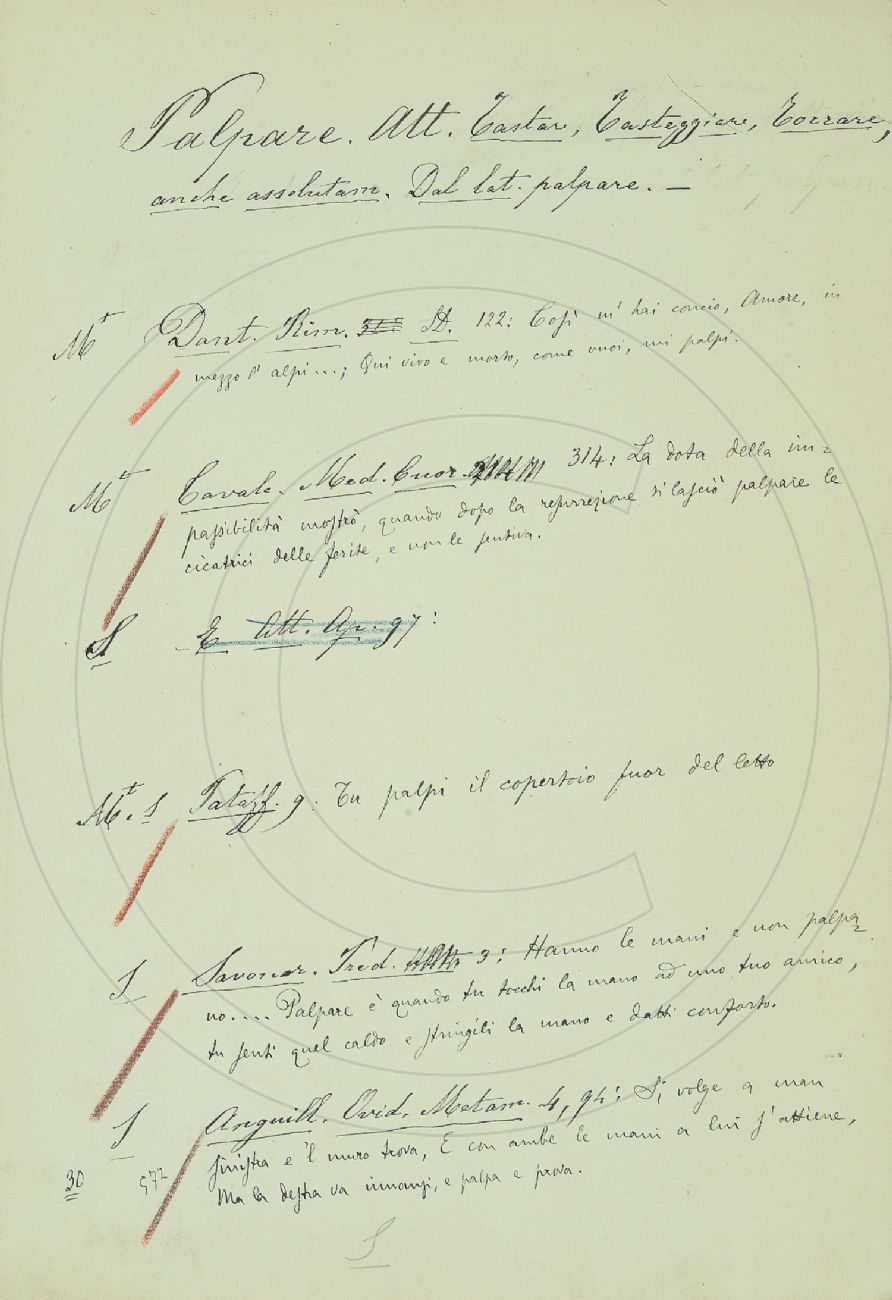 Palpare. Att. Tastare, Tasteggiare, Toccare,
anche assolutam. Dal lat. palpare. —
Mt Dant. Rim. St. 122: Così m' hai concio, Amore, in
mezzo l' alpi...; Qui vivo e morto, come vuoi, mi palpi.
Mt Cavalc. Med. Cuor. 314: La dota della im=
passibilità mostrò, quando dopo la resurrezione si lasciò palpare le
cicatrici delle ferite, e non le sentiva.
S - E Att. Ap. 97:
Mt. S Pataff. 9. Tu palpi il copertoio fuor del letto
S Savonar. Pred. 3: Hanno le mani e non palpa=
no.... Palpare è quando tu tocchi la mano ad uno tuo amico,
tu senti quel caldo e stringili la mano e datti conforto.
S Anguill. Ovid. Metam. 4, 94: Si volge a man
sinistra e 'l muro trova, E con ambe le mani a lui s' attiene,
30 572 Ma la destra va innanzi, e palpa e prova.
S